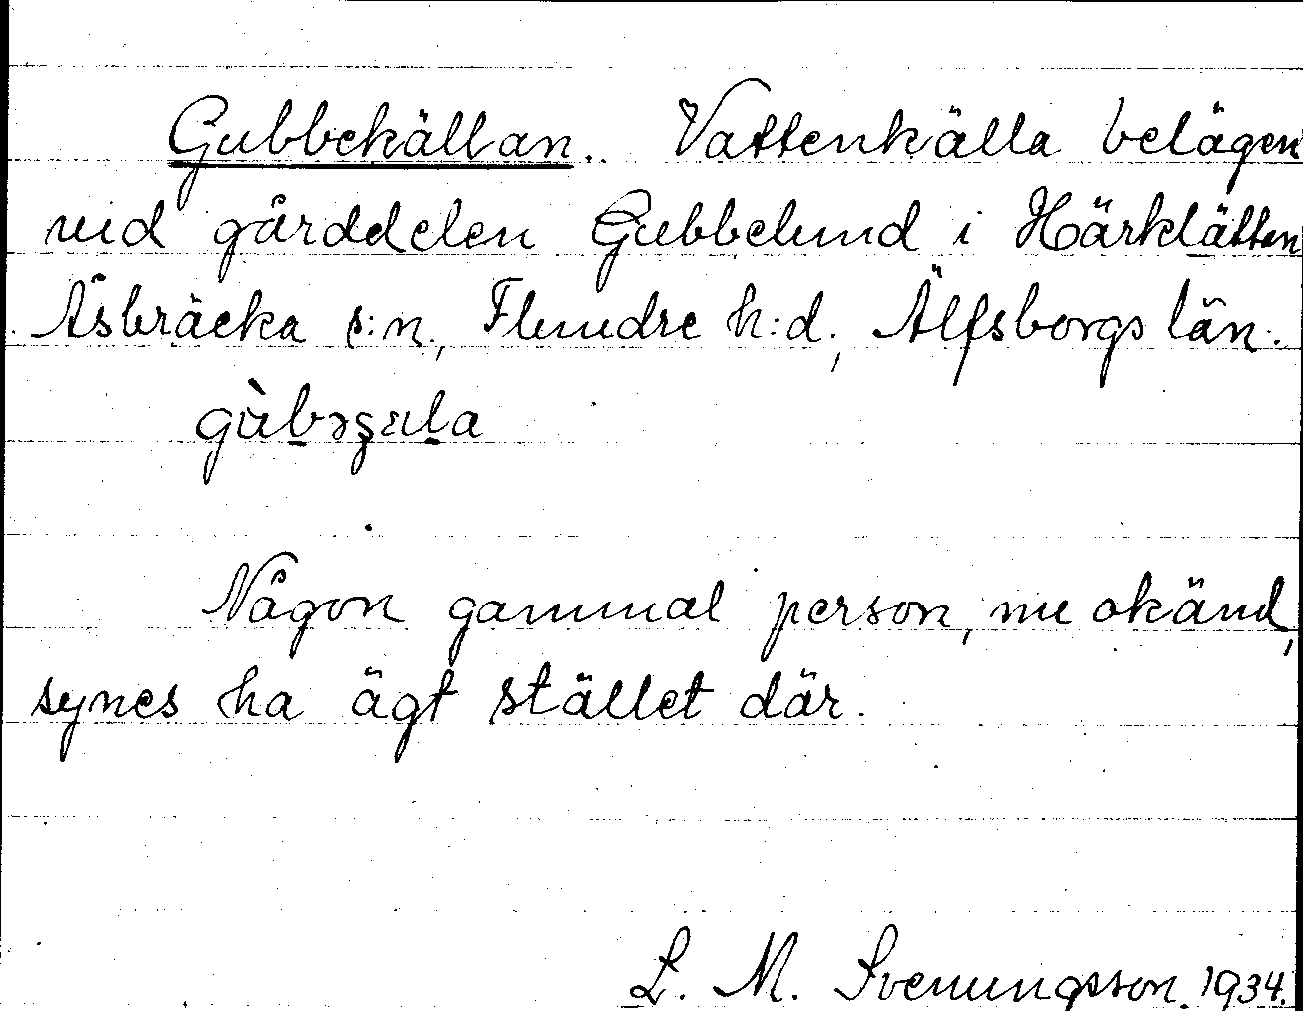 Gubbekällan. Vattenkälla belägen
vid gårddelen Gubbelund i Härklätten
Åsbräcka s:n, Flundre h:d, Älfsborgs län.
gùbəʂɛla
Någon gammal person, nu okänd,
synes ha ägt stället där.
L. M. Svenungsson 1934.